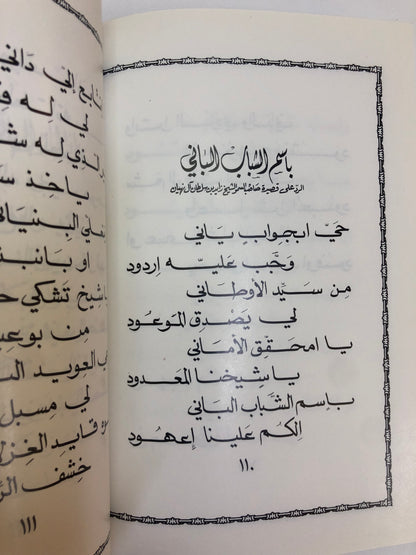 باسم الشباب الباني
الرد على قصيدة صاحب السمو الشيخ زايد بن سلطان آل نهيان
حيّ ابجوابٍ ياني
وجب عليه اردود
من سيّد الأوطاني
لي يصدق الموعود
يا امحقق الأماني
يا شيخنا المعدود
باسم الشباب الباني
الكم علينا اعهود
١١٠
إلي داني
لي له
لذي له
ياخذ
او
شيخ تشكي
من
العويد
لي مسبل
قايد
خشف
١١١